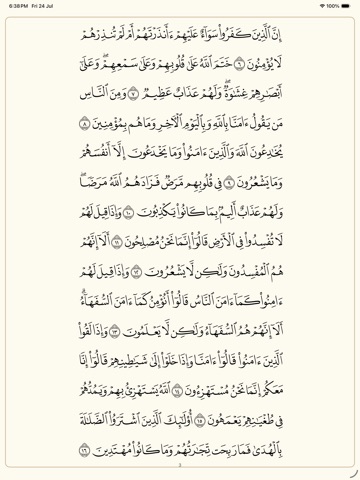 6:38 PM Fri 24 Jul 100%
إِنَّ ٱلَّذِينَ كَفَرُوا۟ سَوَآءٌ عَلَيْهِمْ ءَأَنذَرْتَهُمْ أَمْ لَمْ تُنذِرْهُمْ
لَا يُؤْمِنُونَ ٦ خَتَمَ ٱللَّهُ عَلَىٰ قُلُوبِهِمْ وَعَلَىٰ سَمْعِهِمْ ۖ وَعَلَىٰٓ
أَبْصَٰرِهِمْ غِشَٰوَةٌ ۖ وَلَهُمْ عَذَابٌ عَظِيمٌ ٧ وَمِنَ ٱلنَّاسِ
مَن يَقُولُ ءَامَنَّا بِٱللَّهِ وَبِٱلْيَوْمِ ٱلْءَاخِرِ وَمَا هُم بِمُؤْمِنِينَ ٨
يُخَٰدِعُونَ ٱللَّهَ وَٱلَّذِينَ ءَامَنُوا۟ وَمَا يَخْدَعُونَ إِلَّآ أَنفُسَهُمْ
وَمَا يَشْعُرُونَ ٩ فِى قُلُوبِهِم مَّرَضٌ فَزَادَهُمُ ٱللَّهُ مَرَضًا ۖ
وَلَهُمْ عَذَابٌ أَلِيمٌۢ بِمَا كَانُوا۟ يَكْذِبُونَ ١٠ وَإِذَا قِيلَ لَهُمْ
لَا تُفْسِدُوا۟ فِى ٱلْأَرْضِ قَالُوٓا۟ إِنَّمَا نَحْنُ مُصْلِحُونَ ١١ أَلَآ إِنَّهُمْ
هُمُ ٱلْمُفْسِدُونَ وَلَٰكِن لَّا يَشْعُرُونَ ١٢ وَإِذَا قِيلَ لَهُمْ
ءَامِنُوا۟ كَمَآ ءَامَنَ ٱلنَّاسُ قَالُوٓا۟ أَنُؤْمِنُ كَمَآ ءَامَنَ ٱلسُّفَهَآءُ ۗ
أَلَآ إِنَّهُمْ هُمُ ٱلسُّفَهَآءُ وَلَٰكِن لَّا يَعْلَمُونَ ١٣ وَإِذَا لَقُوا۟
ٱلَّذِينَ ءَامَنُوا۟ قَالُوٓا۟ ءَامَنَّا وَإِذَا خَلَوْا۟ إِلَىٰ شَيَٰطِينِهِمْ قَالُوٓا۟ إِنَّا
مَعَكُمْ إِنَّمَا نَحْنُ مُسْتَهْزِءُونَ ١٤ ٱللَّهُ يَسْتَهْزِئُ بِهِمْ وَيَمُدُّهُمْ
فِى طُغْيَٰنِهِمْ يَعْمَهُونَ ١٥ أُو۟لَٰٓئِكَ ٱلَّذِينَ ٱشْتَرَوُا۟ ٱلضَّلَٰلَةَ
بِٱلْهُدَىٰ فَمَا رَبِحَت تِّجَٰرَتُهُمْ وَمَا كَانُوا۟ مُهْتَدِينَ ١٦
3